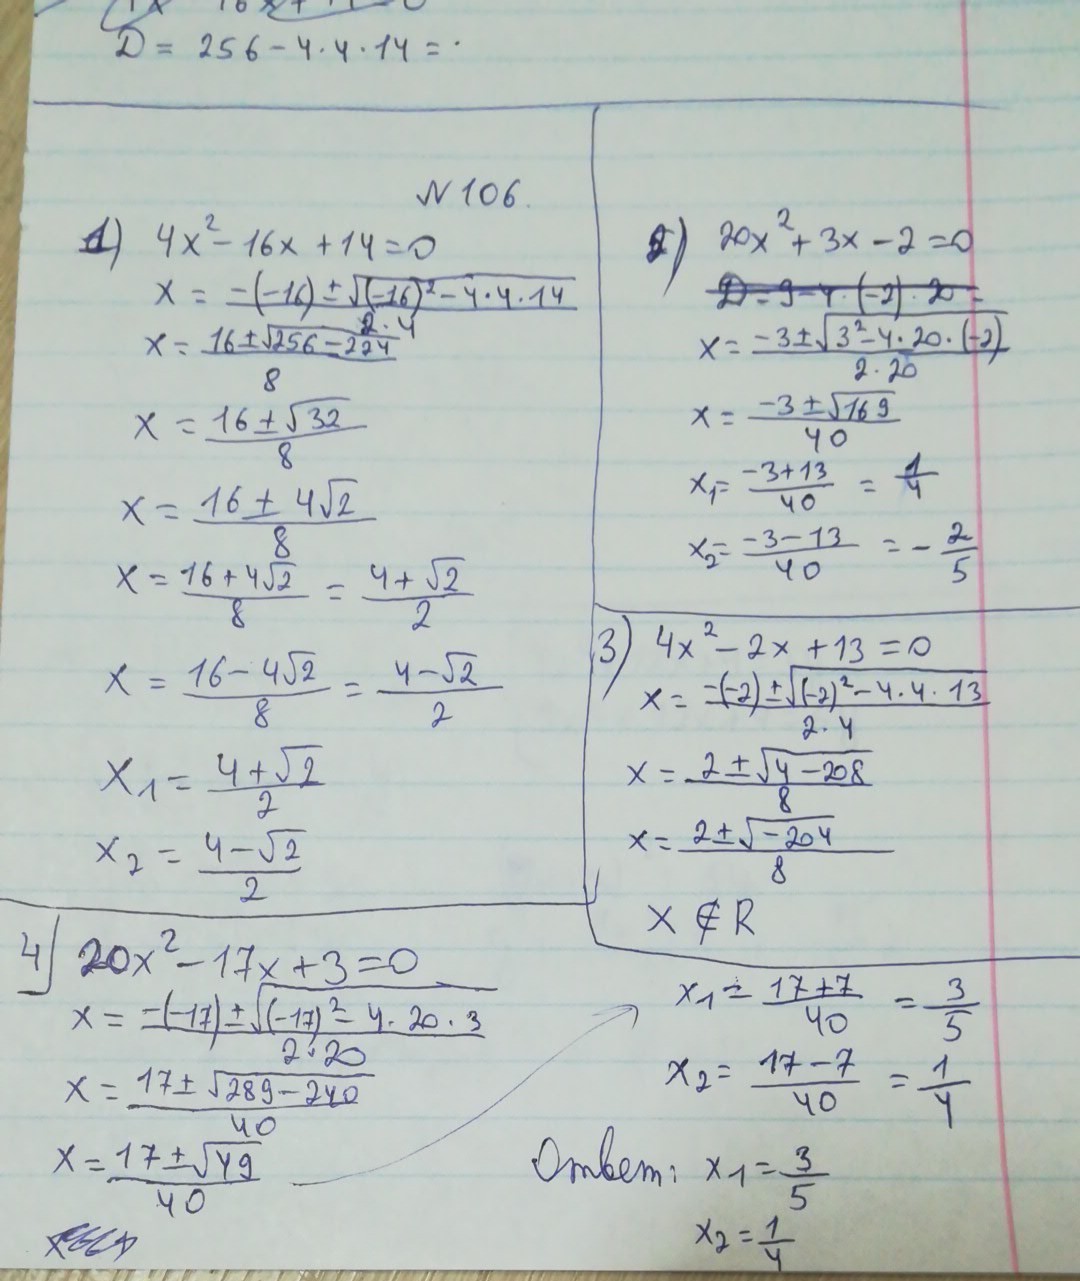 D = 256 - 4·4·14 =
N 106.
1) 4x² - 16x + 14 = 0
x = (-(-16) ± √((-16)² - 4·4·14)) / (2·4)
x = (16 ± √(256 - 224)) / 8
x = (16 ± √32) / 8
x = (16 ± 4√2) / 8
x = (16 + 4√2) / 8 = (4 + √2) / 2
x = (16 - 4√2) / 8 = (4 - √2) / 2
x₁ = (4 + √2) / 2
x₂ = (4 - √2) / 2
2) 20x² + 3x - 2 = 0
D = 9 - 4·(-2)·20 =
x = (-3 ± √(3² - 4·20·(-2))) / (2·20)
x = (-3 ± √169) / 40
x₁ = (-3 + 13) / 40 = 1/4
x₂ = (-3 - 13) / 40 = -2/5
3) 4x² - 2x + 13 = 0
x = (-(-2) ± √((-2)² - 4·4·13)) / (2·4)
x = (2 ± √(4 - 208)) / 8
x = (2 ± √(-204)) / 8
x ∉ R
4) 20x² - 17x + 3 = 0
x = (-(-17) ± √((-17)² - 4·20·3)) / (2·20)
x = (17 ± √(289 - 240)) / 40
x = (17 ± √49) / 40
x₁ = (17 + 7) / 40 = 3/5
x₂ = (17 - 7) / 40 = 1/4
Ответ: x₁ = 3/5
x₂ = 1/4